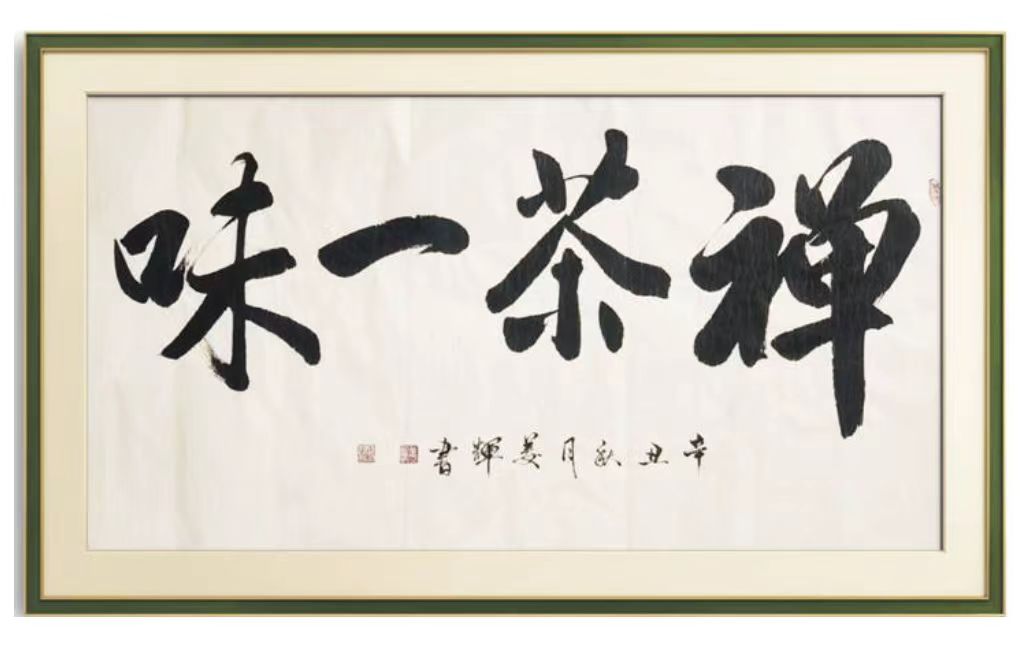 禅茶一味
辛丑秋月姜辉書